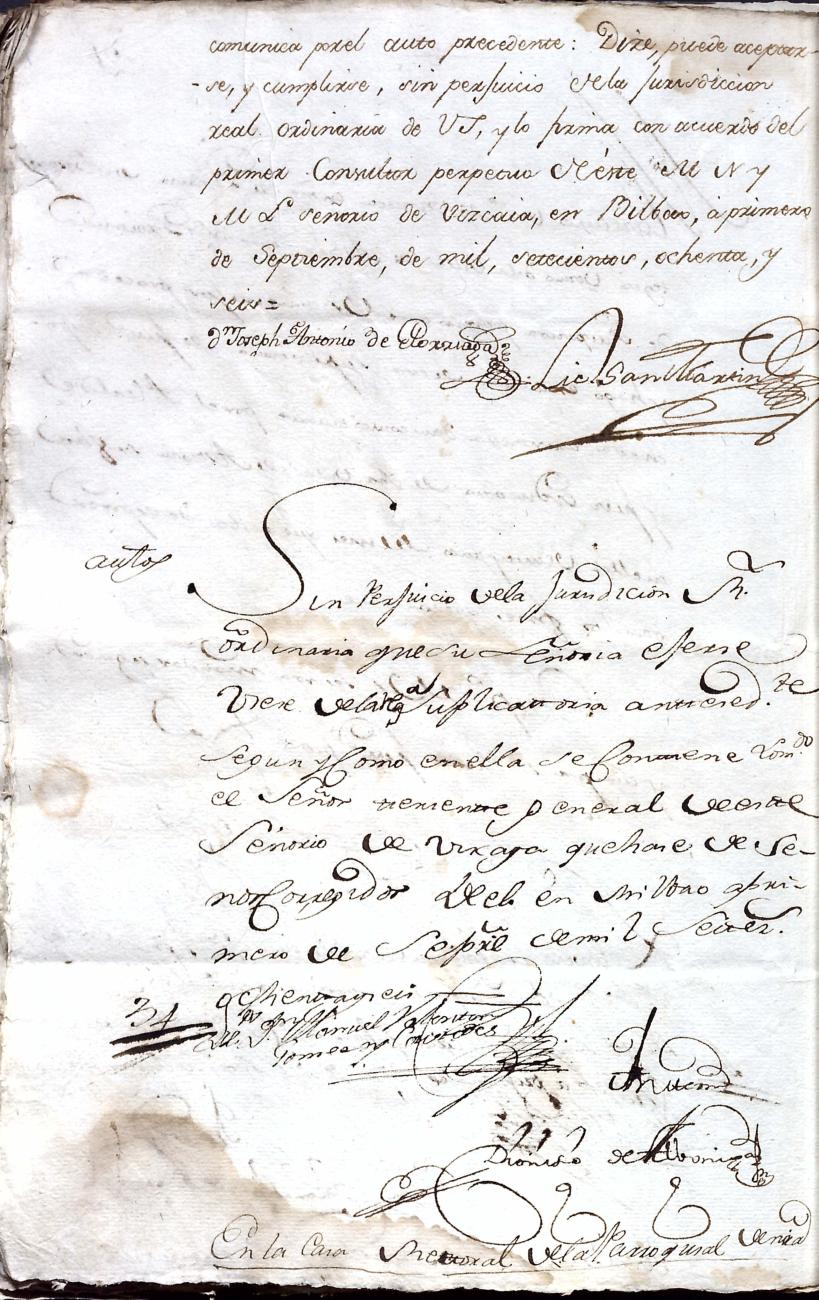 comunica porel auto precedente: Dize, puede aceptar-
-se, y cumplirse, sin perjuicio dela Jurisdiccion
real ordinaria de VS, y lo firma con acuerdo del
primer Consultor perpetuo de éste M N y
M Lˡ señorio de Vizcaia, en Bilbao, á primero
de Septiembre, de mil, setecientos, ochenta, y
seis=
dⁿ Joseph Antonio de
Lic. San Martin
autos
Sin Perjuicio dela Jurisdicion Rˡ
ordinaria que su Señoria eferse
Vsese dela suplicatoria anteced.te
segun y Como en ella se Contiene
el Señor teniente general de este
Señorio de Vizcaya que hace de Se-
ñor Corregidor de el en Bilbao apri-
mero de Sepre de mil Setez.
ochenta y seis
34
Manuel
Gomez y
Ante mi
Dionisio de Albóniga
En la Casa Rectoral dela Parroquial de